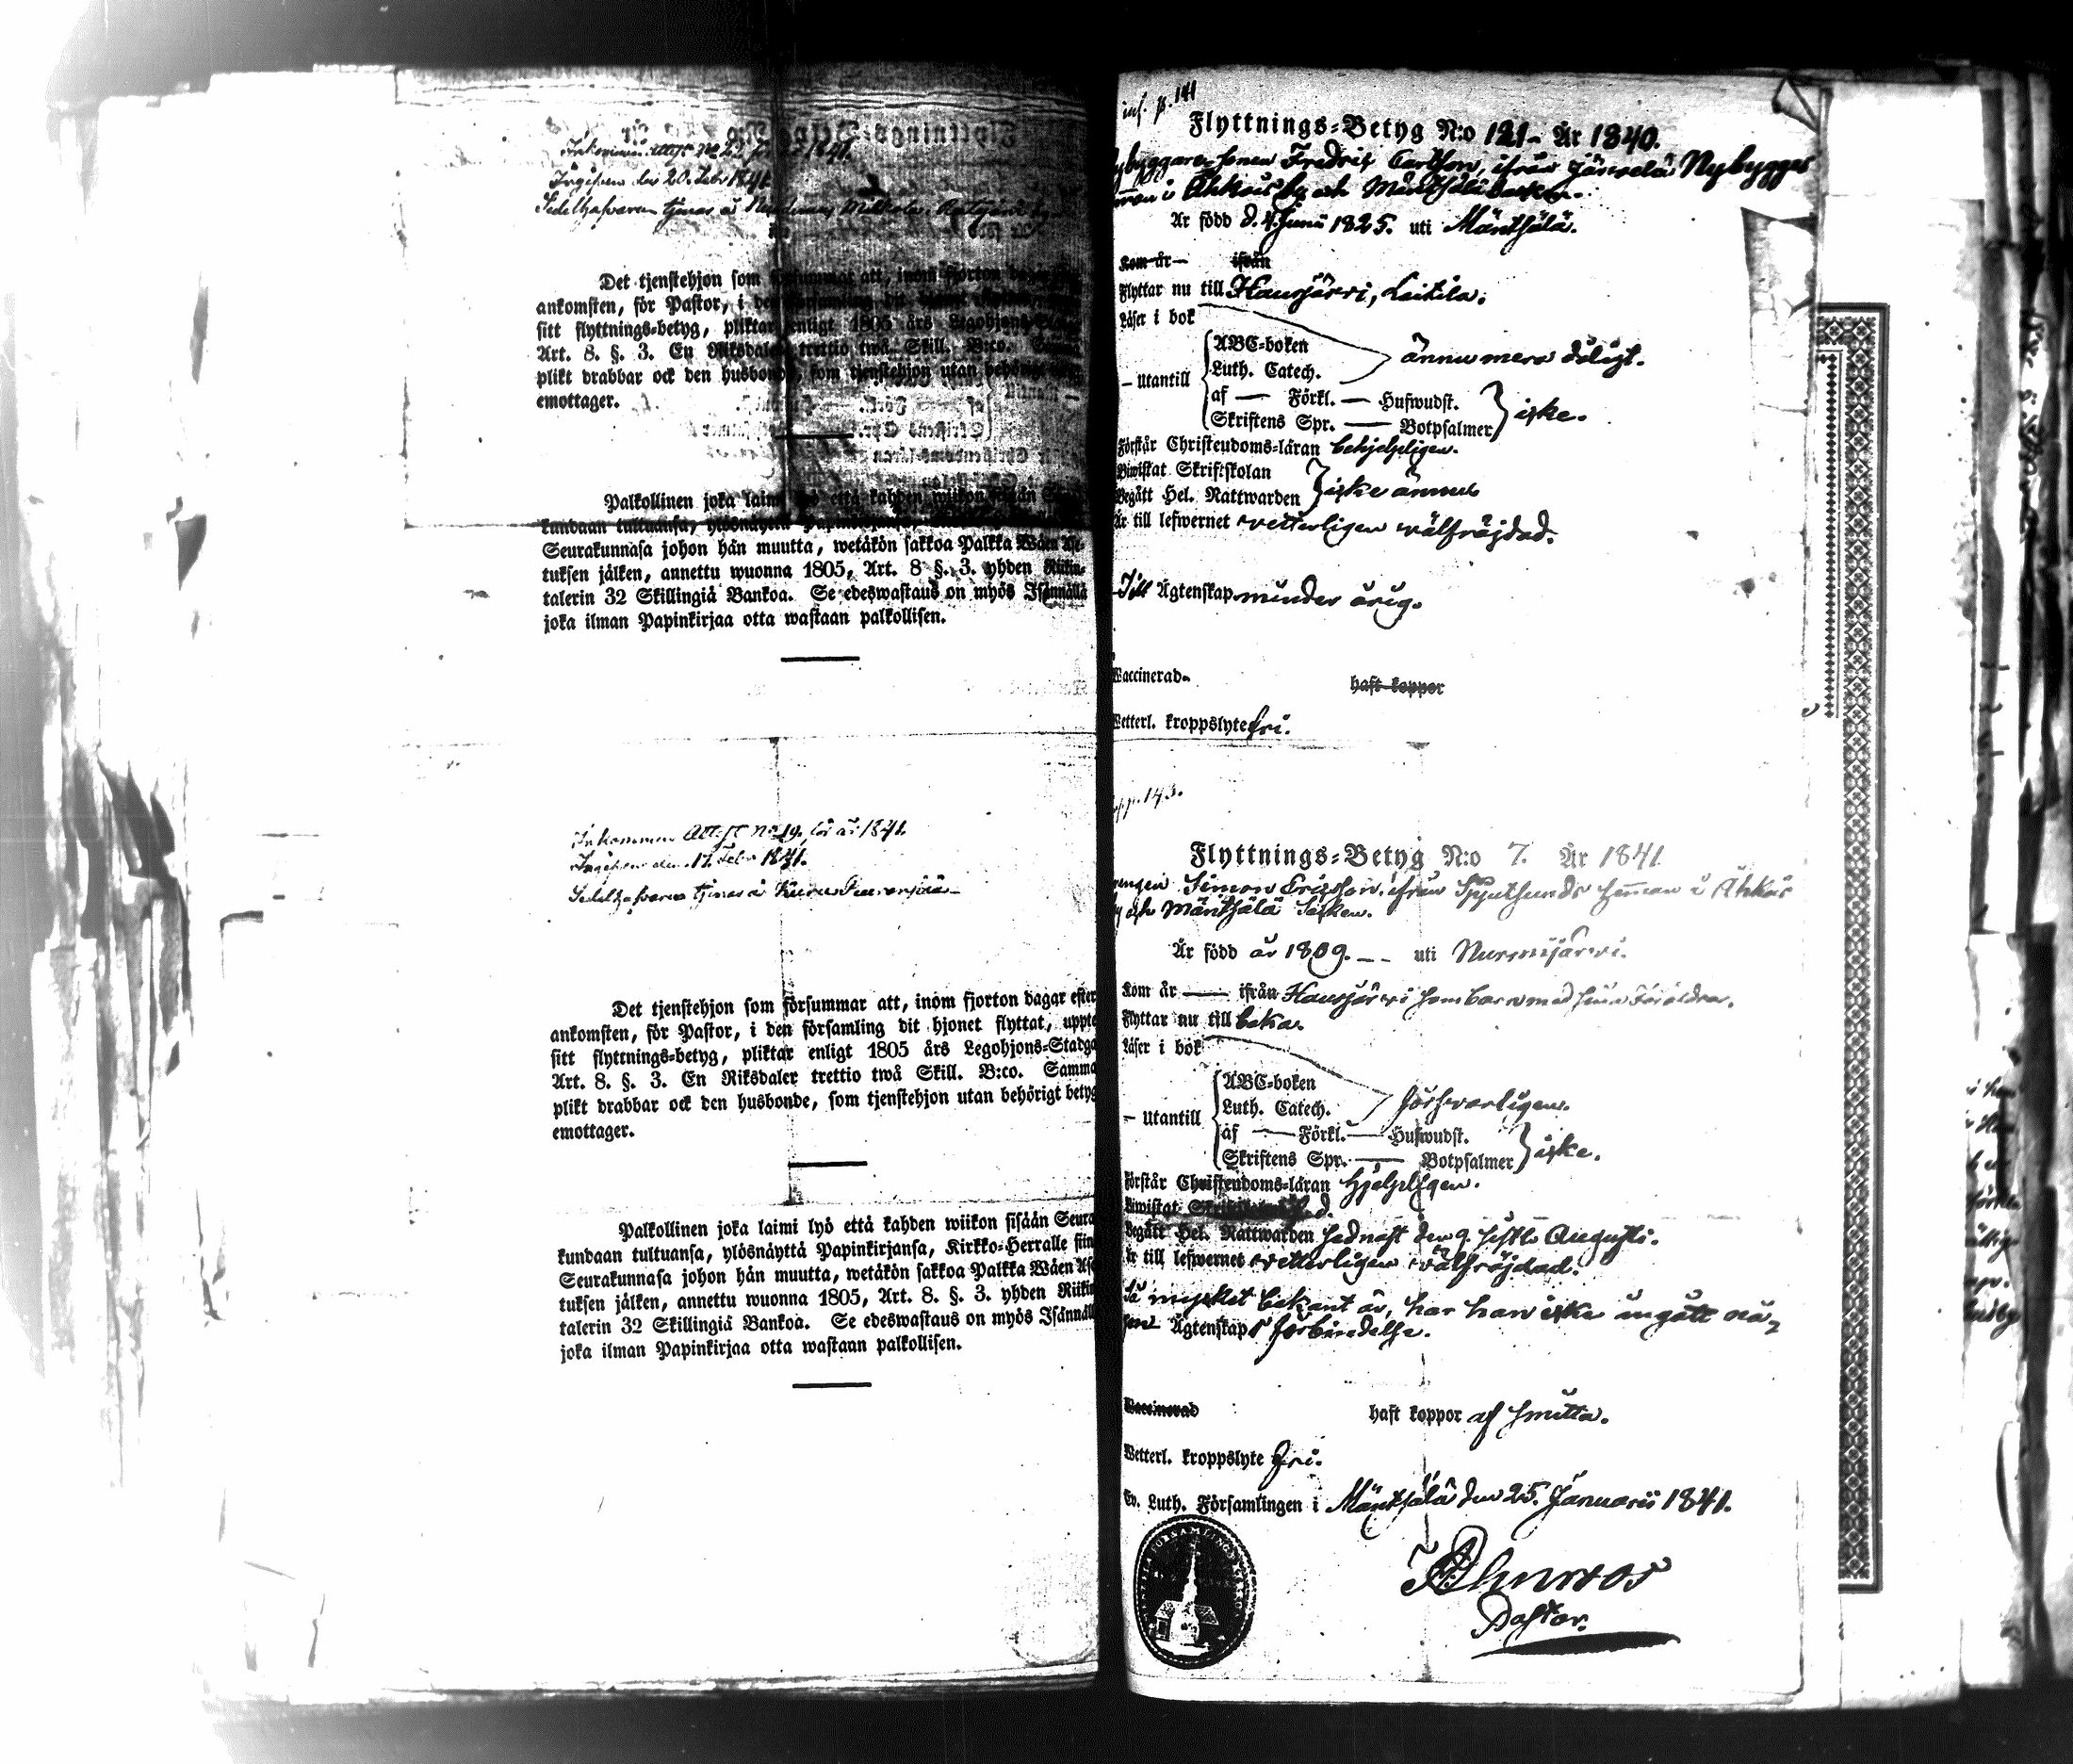 Inkommen Att:st No 22 för år 1841.
Ingifven den 20. Febr 1841
Sedelhafvaren tjenar å
Det tjenstehjon som försummar att, inom fjorton dagar
ankomsten, för Pastor, i den
sitt flyttnings=betyg, pliktar enligt 1805 års Legohjons=
Art. 8. §. 3. En Riksdaler trettio twå Skill. B:co. Samma
plikt drabbar ock den husbonde, som tjenstehjon utan behörigt
emottager.
Palkollinen joka laimi lyö että kahden wiikon sisään
kundaan tultuansa, ylösnäyttä Papinkirjansa,
Seurakunnasa johon hän muutta, wetäkön sakkoa Palkka Wäen As-
tuksen jälken, annettu wuonna 1805, Art. 8 §. 3. yhden Riikin-
talerin 32 Skillingiä Bankoa. Se edeswastaus on myös Isännällä
joka ilman Papinkirjaa otta wastaan palkollisen.
Inkommen Att:st No 19, för år 1841.
Ingifven den 17. Febr 1841.
Sedelhafvaren tjenar å
Det tjenstehjon som försummar att, inom fjorton dagar efter
ankomsten, för Pastor, i den församling dit hjonet flyttat, uppte
sitt flyttnings=betyg, pliktar enligt 1805 års Legohjons=Stadga
Art. 8. §. 3. En Riksdaler trettio twå Skill. B:co. Samma
plikt drabbar ock den husbonde, som tjenstehjon utan behörigt betyg
emottager.
Palkollinen joka laimi lyö että kahden wiikon sisään Seura
kundaan tultuansa, ylösnäyttä Papinkirjansa, Kirkko=Herralle siin
Seurakunnasa johon hän muutta, wetäkön sakkoa Palkka Wäen Ase
tuksen jälken, annettu wuonna 1805, Art. 8. §. 3. yhden Riikin
talerin 32 Skillingiä Bankoa. Se edeswastaus on myös Isännäll
joka ilman Papinkirjaa otta wastaan palkollisen.
inf. p. 141
Flyttnings=Betyg N:o 121 - År 1840.
Nybyggare sonen Fredric Carlsson, ifrån Nybygges
i Ähkäis by och Mäntsälä Socken.
Är född d. 4 Junii 1825. uti Mäntsälä.
Kom år — ifrån
Flyttar nu till Hausjärvi, Laitila.
Läser i bok
ABC=boken
Luth. Catech. ännu mera dåligt.
— Utantill
af — Förkl. — Hufwudst.
Skriftens Spr. — Botpsalmer icke.
Förstår Christendoms=läran behjelpligen.
Biwistat Skriftskolan
Begått Hel. Nattwarden icke ännu
Är till lefwernet vetterligen välfräjdad.
Till Ägtenskap minder årig.
Vaccinerad haft koppor
Wetterl. kroppslyte fri.
p. 143.
Flyttnings=Betyg N:o 7. År 1841
Drengen Simon Ericsson, ifrån Spjutsunds heman i Ähkäis
by och Mäntsälä Socken.
Är född år 1809. — uti Nurmijärvi.
Kom år — ifrån Hausjärvi som barn med sina Föräldrar.
Flyttar nu till baka.
Läser i bok
ABC=boken
Luth. Catech. försvarligen.
— Utantill
af — Förkl. — Hufwudst.
Skriftens Spr. — Botpsalmer icke.
Förstår Christendoms=läran hjelpligen.
Biwistat
Begått Hel. Nattwarden sednast den 9. sistl. Augusti.
Är till lefwernet vetterligen välfräjdad.
Så mycket bekant är, har han icke ingått nå-
gon Ägtenskaps förbindelse.
Vaccinerad haft koppor af smitta.
Wetterl. kroppslyte fri.
Ev. Luth. Församlingen i Mäntsälä den 25. Januarii 1841.
Pastor.